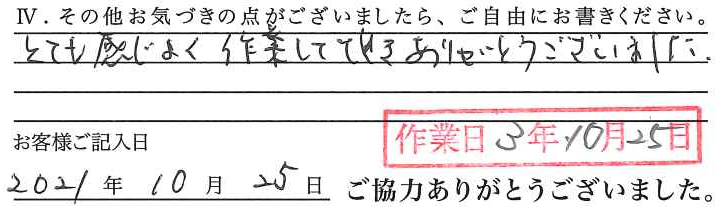 Ⅳ．その他お気づきの点がございましたら、ご自由にお書きください。
とても感じよく作業して頂きありがとうございました。
お客様ご記入日
作業日 3年10月25日
2021年10月25日 ご協力ありがとうございました。